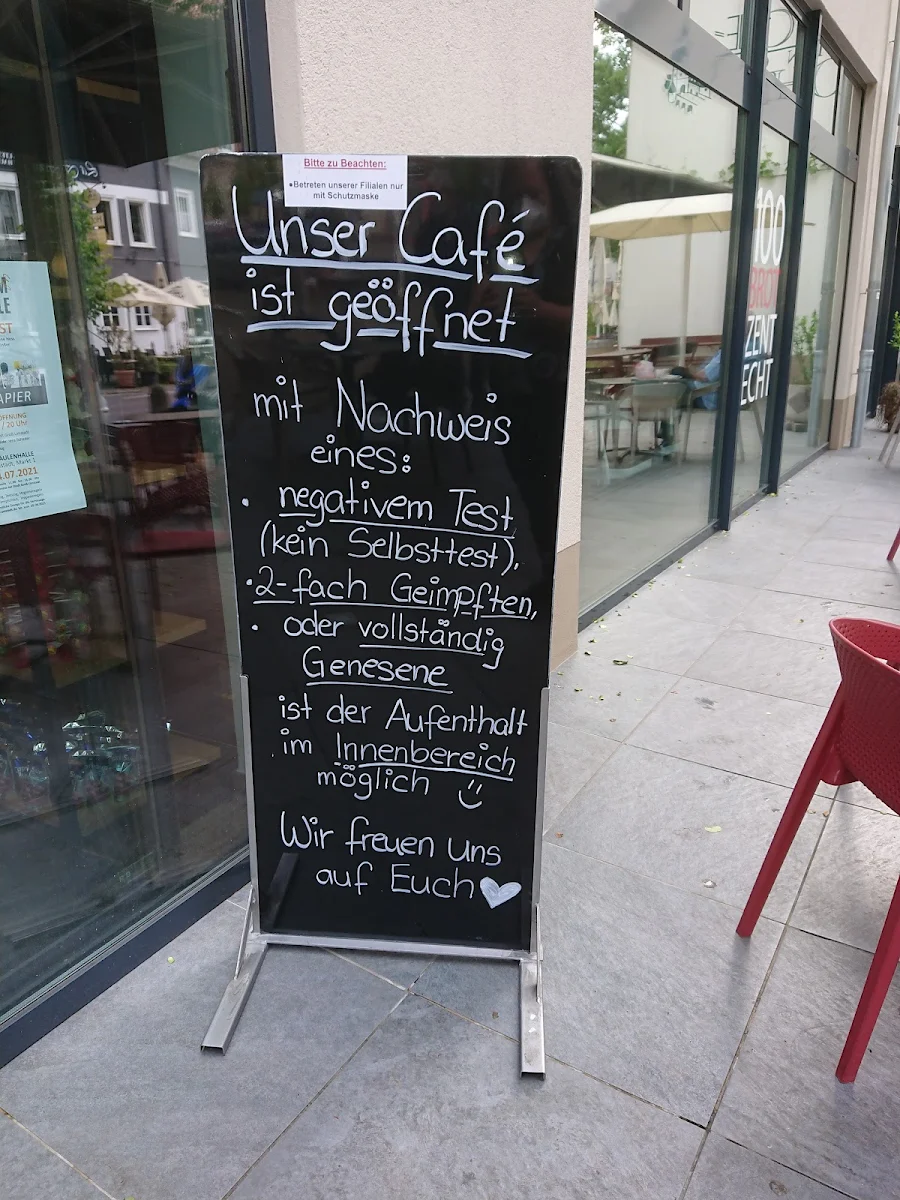 Bitte zu Beachten:
•Betreten unserer Filialen nur
mit Schutzmaske
Unser Café
ist geöffnet
mit Nachweis
eines:
• negativem Test
(kein Selbsttest),
•2-fach Geimpften,
• oder vollständig
Genesene
ist der Aufenthalt
im Innenbereich
möglich
Wir freuen uns
auf Euch
100
BROT
ZENT
ECHT
APIER
/ 20 Uhr